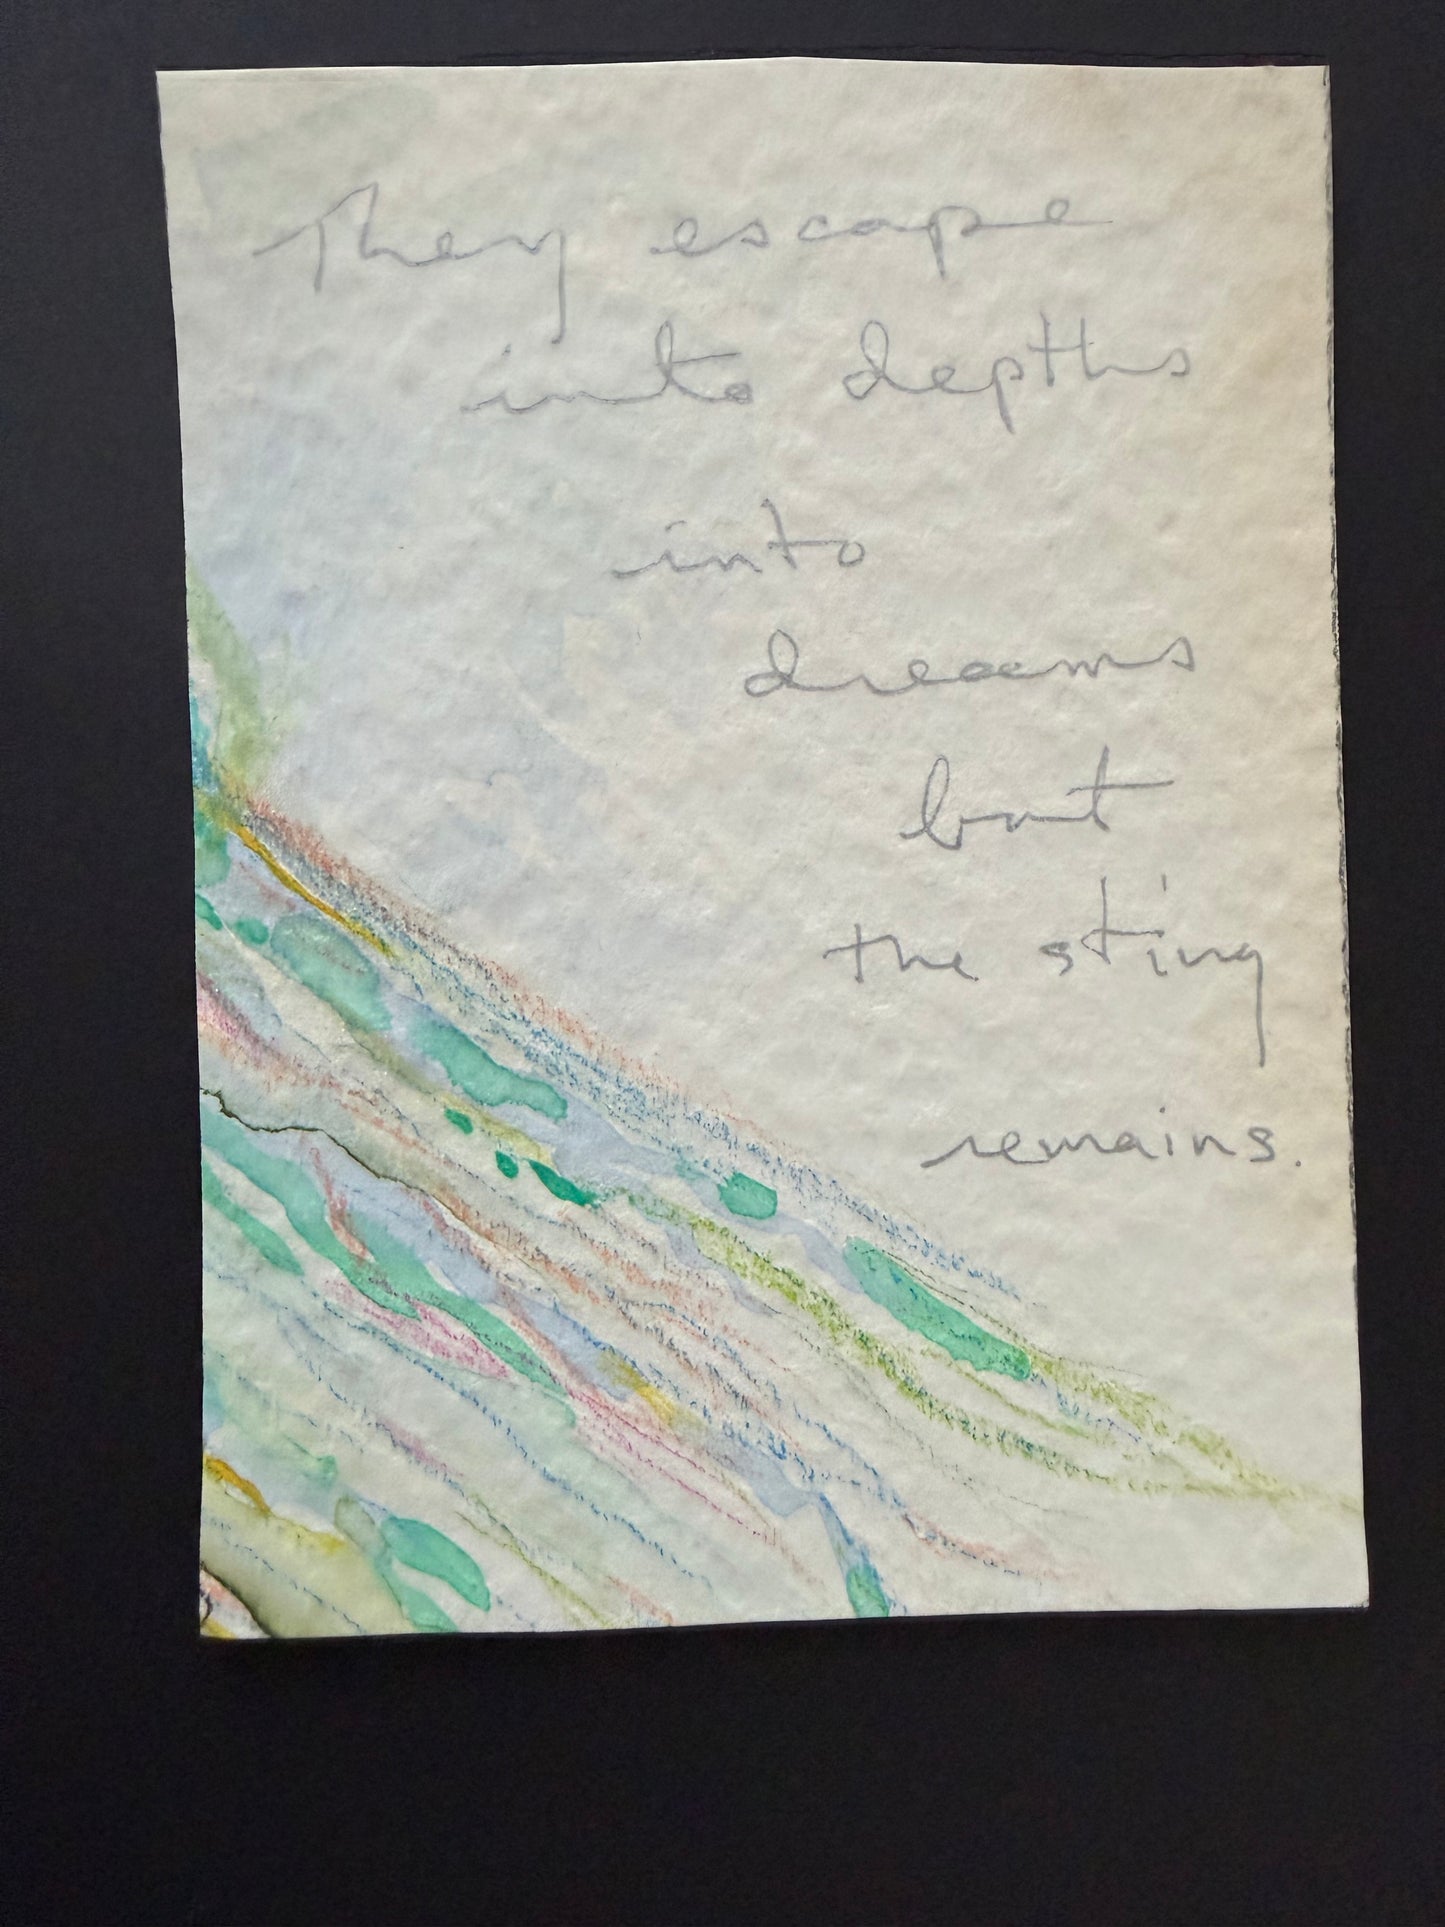 They escape
into depths
into
dreams
but
the sting
remains.